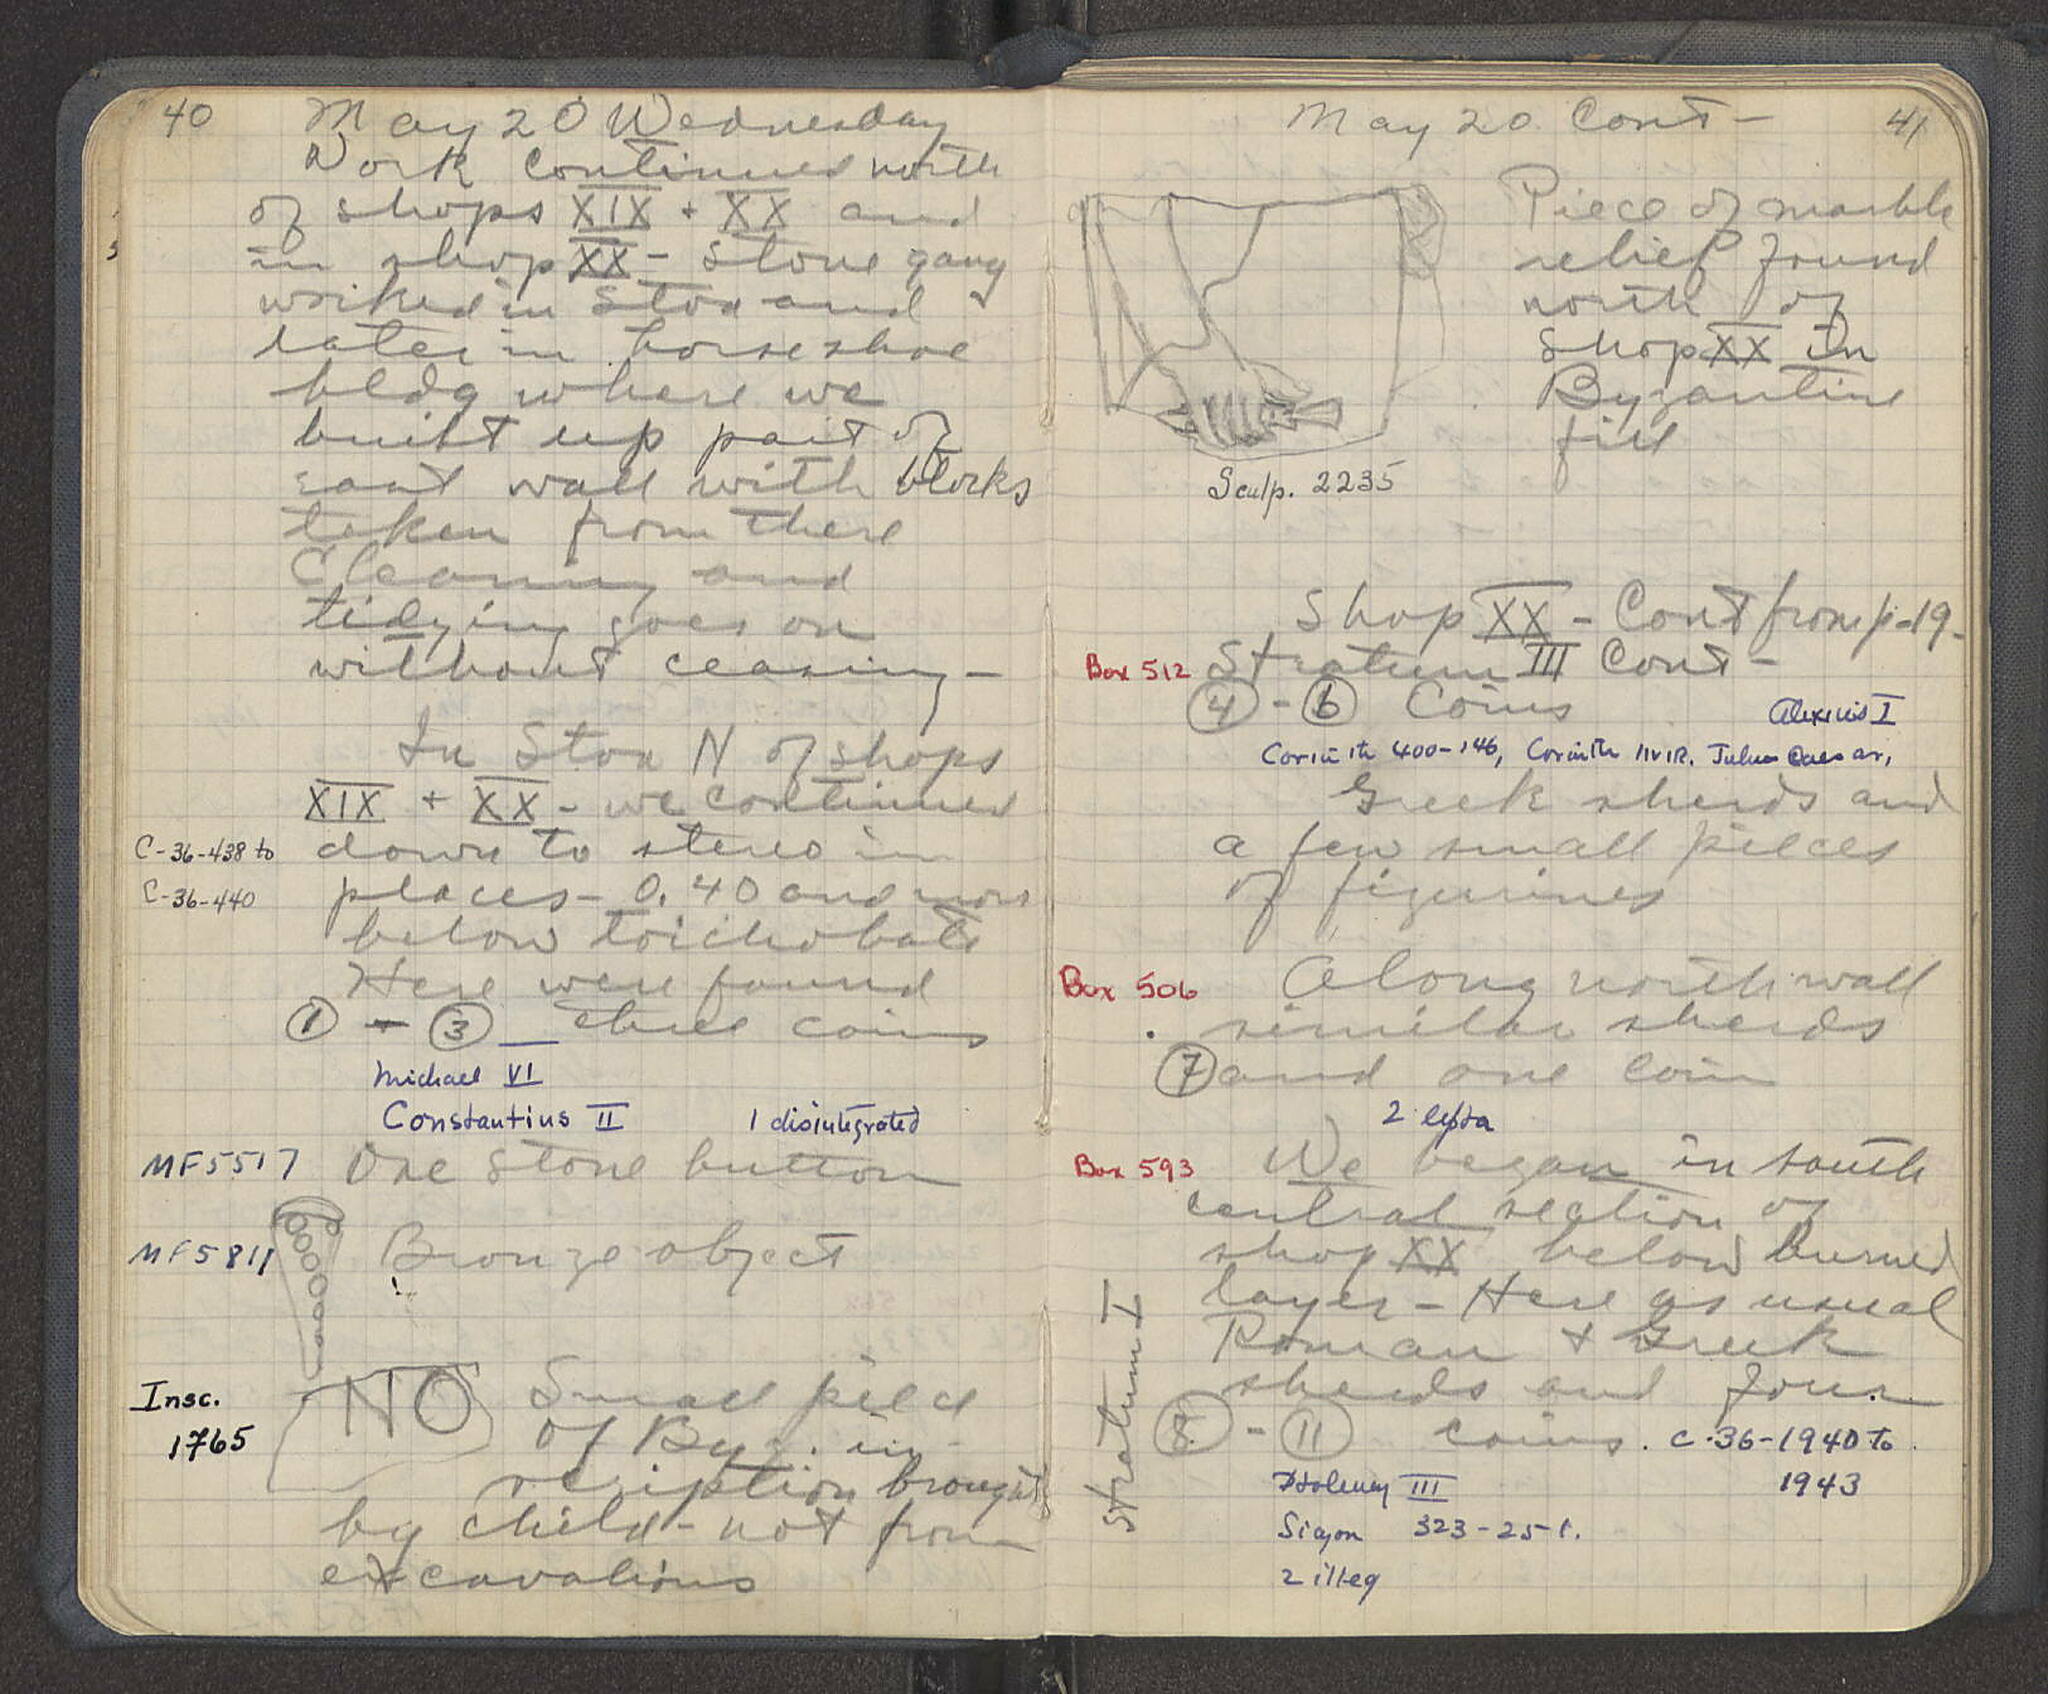 40
May 20 Wednesday
Work continued north
of shops XIX + XX and
in shop XX - Stone gang
worked in Stoa and
later in horseshoe
bldg where we
built up part of
east wall with blocks
taken from there
Cleaning and
tidying goes on
without ceasing -
In Stoa N of shops
XIX + XX - we continued
C-36-438 to down to stereo in
C-36-440 places - 0.40 and more
below toichobate
Here were found
1 - 3 three coins
Michael VI
Constantius II 1 disintegrated
MF5517 One stone button
MF5811 Bronze object
Insc. NO Small piece
1765 of Byz. in-
scription brought
by child - not from
excavations
May 20 Cont - 41
Piece of marble
relief found
north of
Shop XX In
Byzantine
fill
Sculp. 2235
Shop XX - Cont from p-19-
Box 512 Stratum III Cont -
4 - 6 Coins Alexius I
Corinth 400-146, Corinth IIVIR. Julius Caesar,
Greek sherds and
a few small pieces
of figurines
Box 506 Along north wall
similar sherds
7 and one coin
2 lepta
Box 593 We began in south
central section of
shop XX below burned
layer - Here as usual
Roman + Greek
sherds and four
8 - 11 coins. C-36-1940 to
1943
Ptolemy III
Sicyon 323-251.
2 illeg
Stratum I